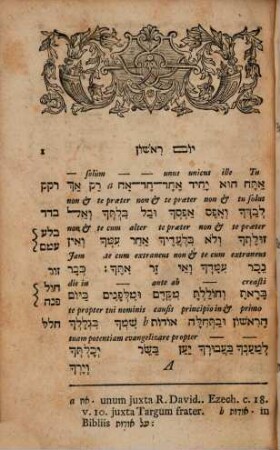 יום ראשון
1
— solùm — — unus unient ille Tu
אתה הוא יחיד אחר־חד־אח a רק אך רקק
non & te præter non & te præter non & tu solus
לבדך ואפס אפסך ובל בלתך ואל בדד
non & te cum alter te præter non & te præter
זולתך ולא בלעדיך אחר עמך ואין בלע עמם
Jam te cum extraneus non & te cum extraneus
נכר עמך ואי זר אתך: כבר זור
die in ante ab — creasti
בראת וחוללת מקדם ומלפנים ביום חול פנה
te propter tui nominis causis principio in & primo
ראשון ובתחלה אודות b שמך בגללך חלל
tuam potentiam evangelizare propter — —
למענך בעבורך יען בשר יכלתך
A וידך
a אח־ unum juxta R. David.. Ezech. c. 18.
v. 10. juxta Targum frater. b אודות־ in
Bibliis על אודות: